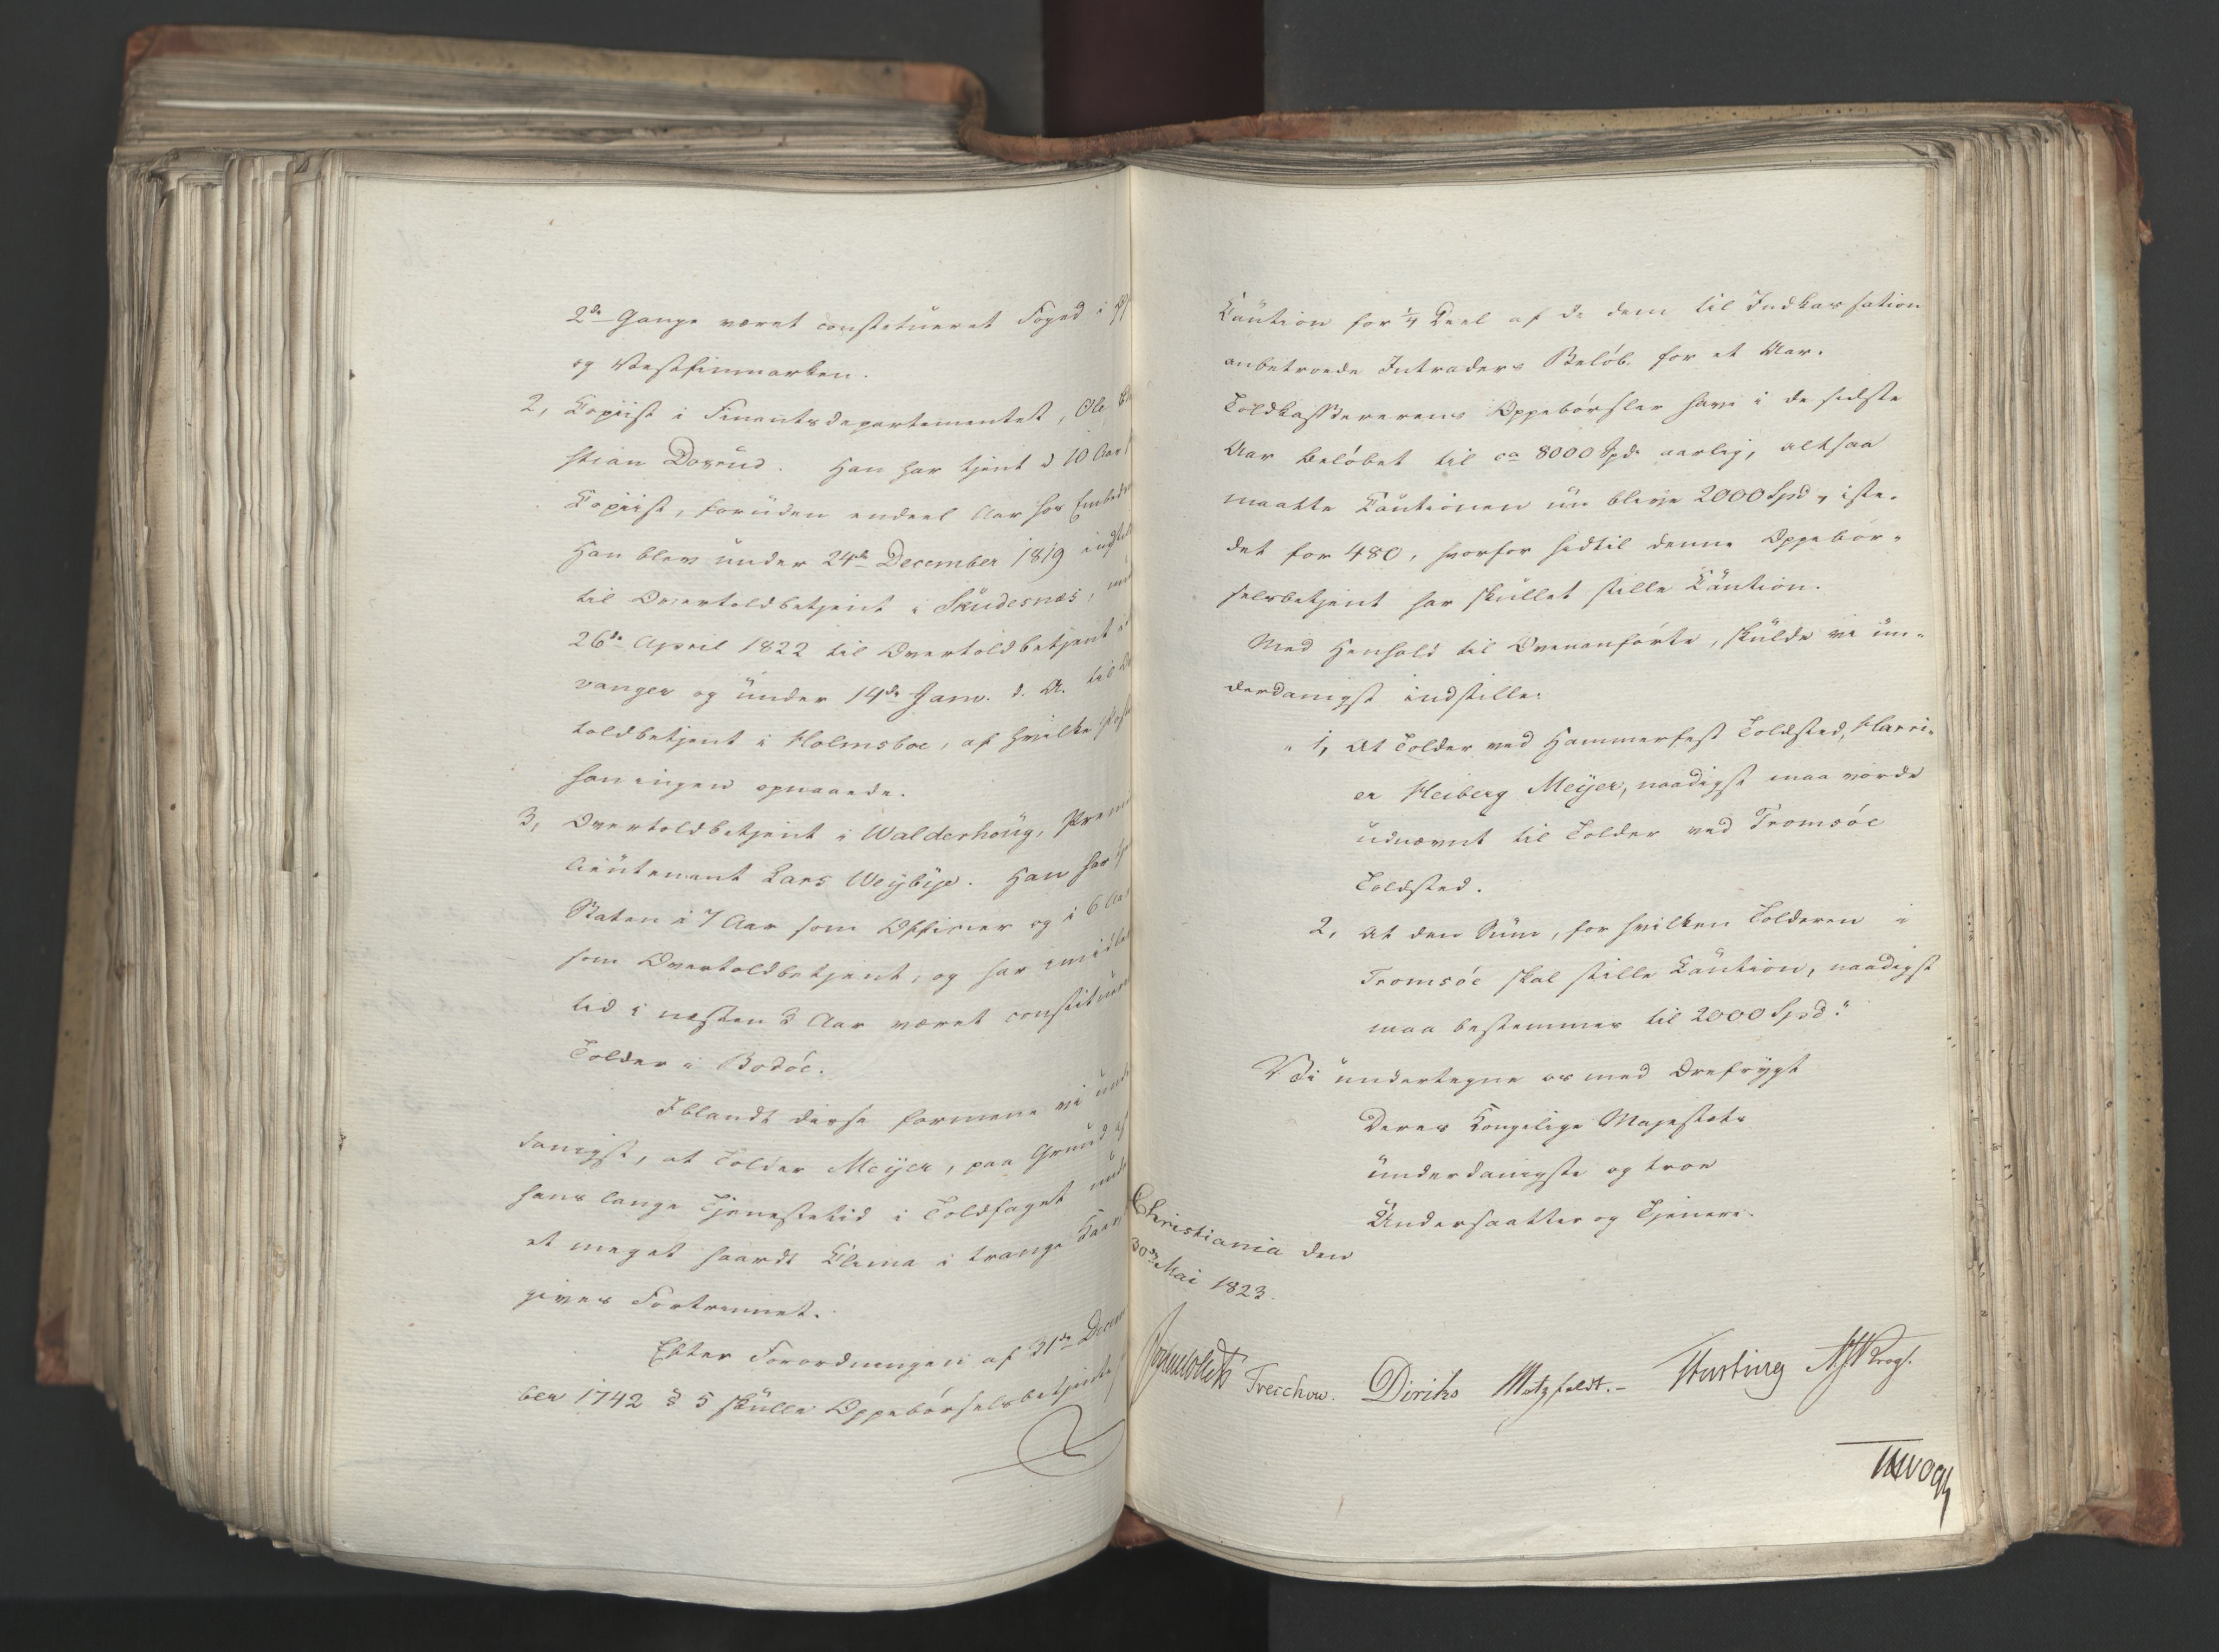 2de Gange været constitueret Foged i
og Vestfinmarken.
2, Kopiist i Finantsdepartementet, Ole
stian Dogrud. Han har tjent i 10 Aar
Kopiist, foruden endeel Aar hos
Han blev under 24de December 1819
til Overtoldbetjent i Skudesnæs,
26de April 1822 til Overtoldbetjent i
vanger og under 14de Janv. d. A. til
toldbetjent i Holmsboe, af hvilke
han ingen opnaaede.
3, Overtoldbetjent i Walderhoug,
lieutenant Lars Weybÿe. Han har
Staten i 7 Aar som Officier og i 6
som Overtoldbetjent, og har imidler
tid i næsten 3 Aar været constitueret
Tolder i Bodöe.
Iblandt disse formene vi
danigst, at Tolder Meÿer, paa Grund af
hans lange Tjenestetid i Toldfaget
et meget haardt Clima i trange Kaar
gives Fortrinnet.
Efter Forordningen af 31de Decem
ber 1742 § 5 skulle Oppebørselsbetjente
Caution for 1/4 Deel af de dem til Indkassation
anbetroede Intraders Beløb for et Aar.
Toldkassererens Oppebørsler have i de sidste
Aar beløbet til ca 8000 Spd. aarlig, altsaa
maatte Cautionen nu blive 2000 Spd., iste-
det for 480, hvorfor hidtil denne Oppebør-
selsbetjent har skullet stille Caution.
Med Henhold til Ovenanførte, skulde vi un-
derdanigst indstille:
" 1, At Tolder ved Hammerfest Toldsted, Harri-
er Heiberg Meÿer, naadigst maa vorde
udnævnt til Tolder ved Tromsöe
Toldsted.
2, At den Sum, for hvilken Tolderen i
Tromsöe skal stille Caution, naadigst
maa bestemmes til 2000 Spd."
Vi undertegne os med Ærefrygt
Deres Kongelige Majestæts
underdanigste og troe
Undersaatter og Tjenere.
Christiania den
30te Mai 1823.
Treschow. Diriks Motzfeldt. Krogh.